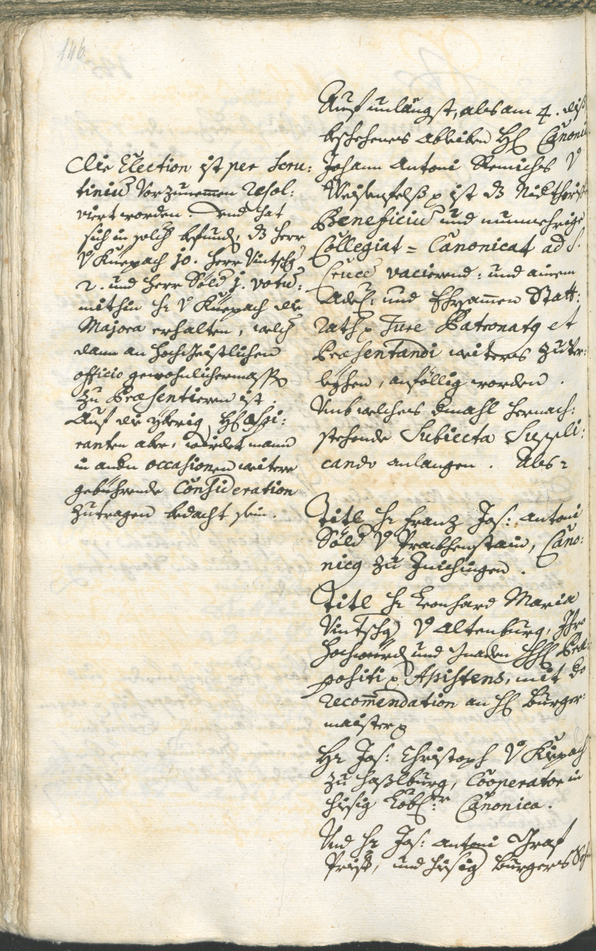 146
Die Election ist per Scru:
tinium vorzunemmen resol:
viert worden. Und hat
sich in solch befundt, dz Herr
v Kuepach 10. Herr Vintschg
2. und Herr Söld 1. votum:
mithin H: v Kuepach die
Majora erhalten, welch
dann an Hochfürstlichen
officio gewohnlichermassen
zu Praesentieren ist.
Auf die ybrig H: Aspi:
ranten aber, würdet mann
in andern occasionen weitere
gebührende Consideration
zutragen bedacht sein.
Auf unlängst, als am 4. dis
beschehenes ableiben H: Canoni
Johann Antoni Remiches v
Weisenfelß ist dz
Beneficium und nunmehrige
Collegiat = Canonicat ad S.
Crucem vacierend: und ainem
Adel: und Ehrsammen Statt:
Rath Jure Patronatus et
Praesentandi weiteres zuver:
leyhen, anföllig worden.
Umb welches dermahl hernach:
stehende Subiecta Suppli:
cando anlangen. Als
Titl H: Franz Jos: Antoni
Söld v Prackhenstain, Cano:
nicus zu Innichingen.
Titl H: Leonhard Maria
Vintschg v Altenburg, Ihro
Hochwürd und Gnaden
positi Assistens, mit
recomendation an H: Burger:
maister
H: Jos: Christoph v Kuepach
zu Haslburg, Cooperator in
hiesig Canonica.
Und H: Jos: Antoni Graf
Priest, und hiesig Burgers